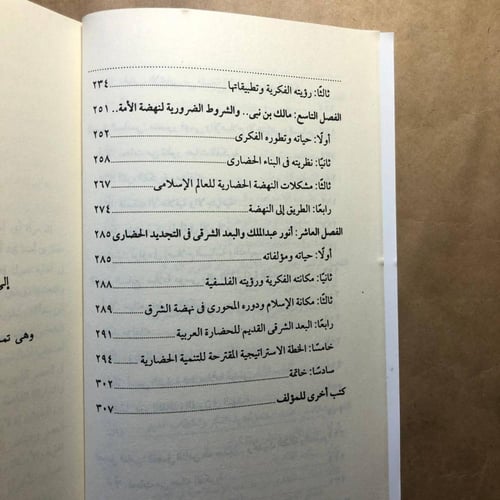 ثالثًا: رؤيته الفكرية وتطبيقاتها ٢٣٤
الفصل التاسع: مالك بن نبى.. والشروط الضرورية لنهضة الأمة.. ٢٥١
أولًا: حياته وتطوره الفكرى ٢٥٢
ثانيًا: نظريته فى البناء الحضارى ٢٥٨
ثالثًا: مشكلات النهضة الحضارية للعالم الإسلامى ٢٦٧
رابعًا: الطريق إلى النهضة ٢٧٤
الفصل العاشر: أنور عبدالملك والبعد الشرقى فى التجديد الحضارى ٢٨٥
أولًا: حياته ومؤلفاته ٢٨٥
ثانيًا: مكانته الفكرية ورؤيته الفلسفية ٢٨٨
ثالثًا: مكانة الإسلام ودوره المحورى فى نهضة الشرق ٢٨٩
رابعًا: البعد الشرقى القديم للحضارة العربية ٢٩١
خامسًا: الخطة الاستراتيجية المقترحة للتنمية الحضارية ٢٩٤
سادسًا: خاتمة ٣٠٢
كتب أخرى للمؤلف ٣٠٧
إلى
وهى